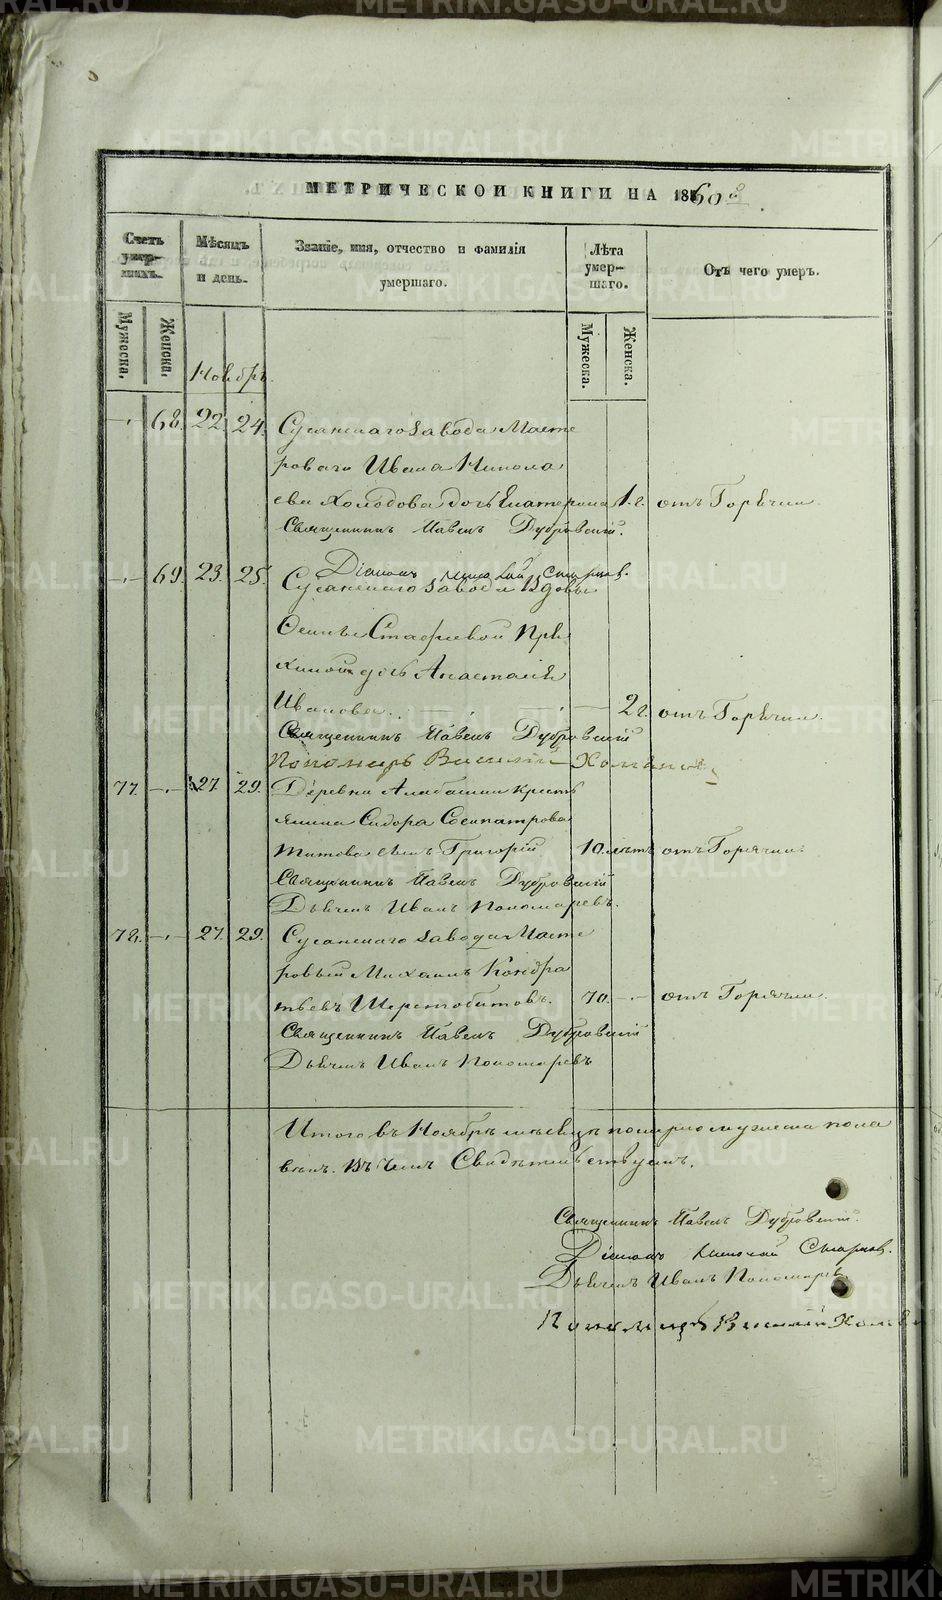 МЕТРИЧЕСКОЙ КНИГИ НА 1860 й
Счетъ умер-шихъ.
Мѣсяцъ и день.
Званіе, имя, отчество и фамилія умершаго.
Лѣта умер-шаго.
Отъ чего умеръ.
Мужеска.
Женска.
Ноябрь.
Мужеска.
Женска.
68. 22. 24. Сусанскаго завода Масте
роваго Ивана Никола
ева Холодова дочь Екатерина 1.г. отъ Горячки
Священникъ Павелъ Дубровскій.
Діаконъ Николай Смирнов.
69. 23. 25. Сусанскаго завода Вдовы
Стафіевой
дочь Анастасія
Иванова 2 г. отъ Горячки.
Священникъ Павелъ Дубровскій
Пономарь Василій
77. 27. 29. Деревни Алабашки кресть
янина Сидора Сосипатрова
Титова сынъ Григорій 10. лѣтъ отъ Горячки
Священникъ Павелъ Дубровскій
Дьячекъ Иванъ Пономаревъ.
78. 27. 29. Сусанскаго завода Масте
ровый Михаилъ Кондра
тьевъ Шерстобитовъ. 70. отъ Горячки.
Священникъ Павелъ Дубровскій
Дьячекъ Иванъ Пономаревъ
Итого въ Ноябрѣ мѣсяцѣ померло мужеска пола
Въ чемъ Свидѣтельствуемъ.
Священникъ Павелъ Дубровскій.
Діаконъ Николай Смирнов.
Дьячекъ Иванъ Пономаревъ
Пономарь Василій
METRIKI.GASO-URAL.RU